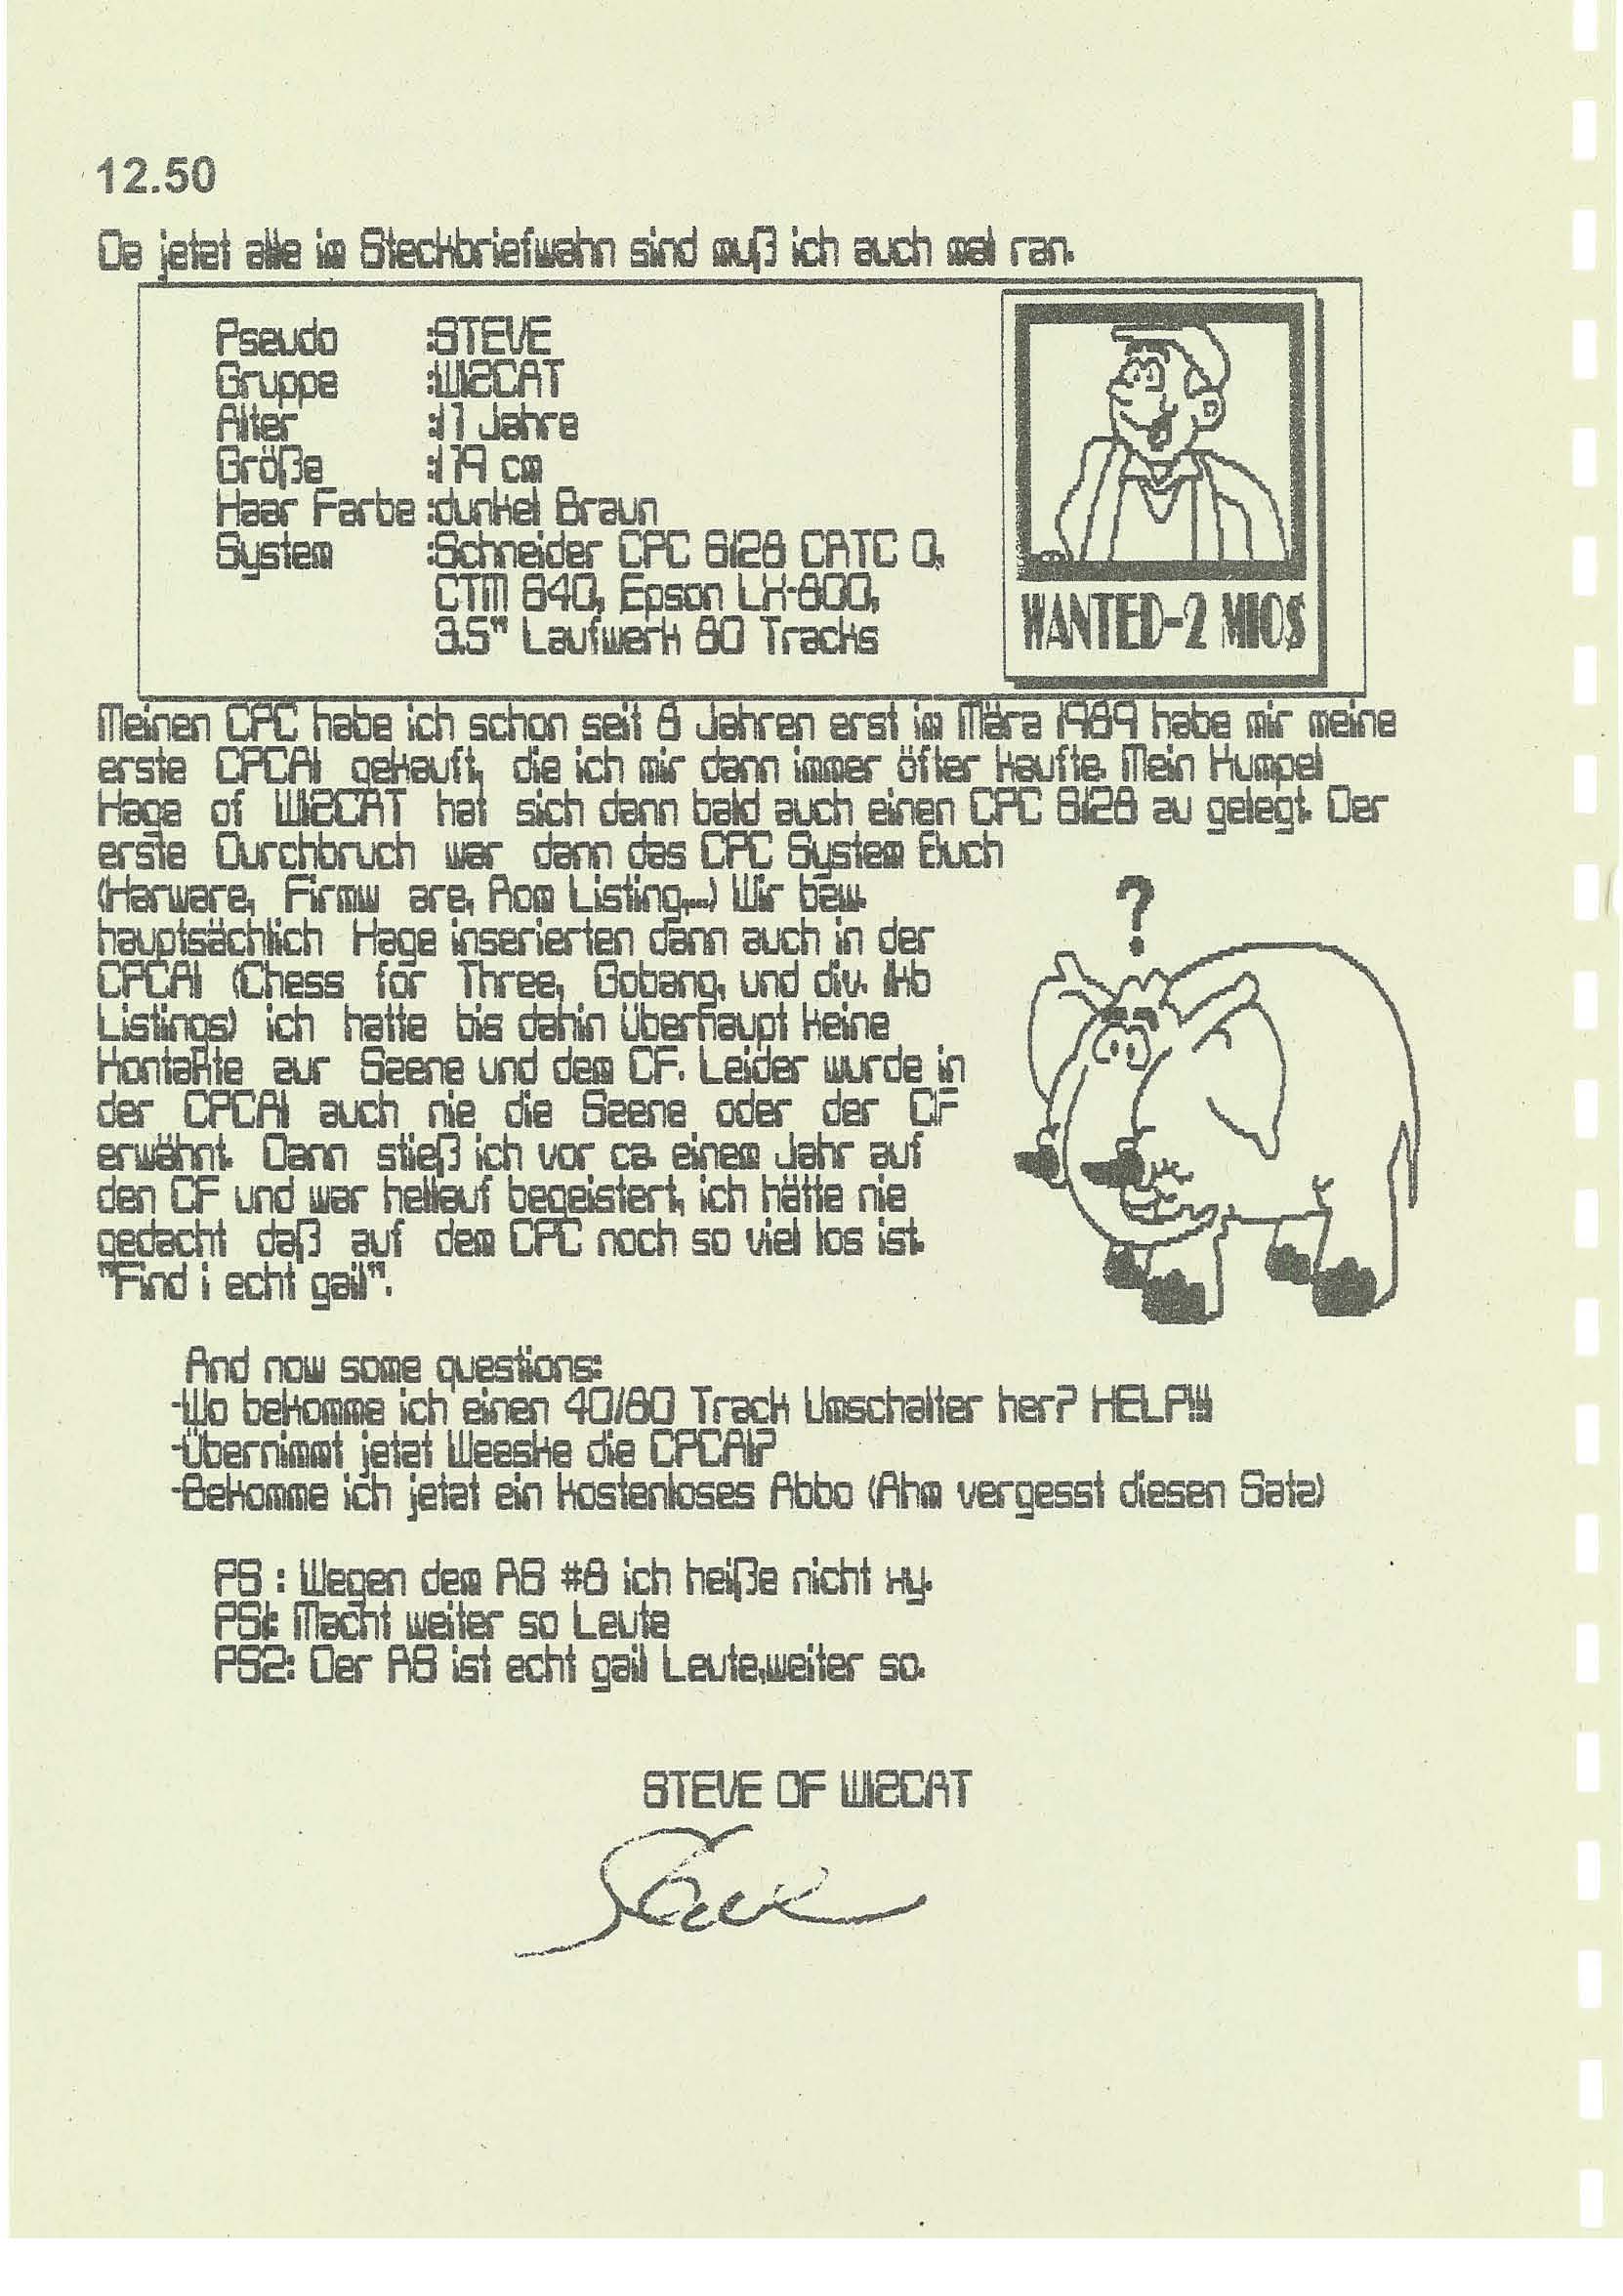 12.50
Da jetzt alle im Steckbriefwahn sind muß ich auch mal ran.
Pseudo :STEVE
Gruppe :WIZCAT
Alter :17 Jahre
Größe :179 cm
Haar Farbe :dunkel Braun
System :Schneider CPC 6128 CRTC 0,
CTM 640, Epson LX-800,
3.5" Laufwerk 80 Tracks
WANTED-2 MIO$
Meinen CPC habe ich schon seit 8 Jahren erst im März 1989 habe mir meine
erste CPCAI gekauft, die ich mir dann immer öfter kaufte. Mein Kumpel
Hage of WIZCAT hat sich dann bald auch einen CPC 6128 zu gelegt. Der
erste Durchbruch war dann das CPC System Buch
(Harware, Firmw are, Rom Listing,...) Wir bzw.
hauptsächlich Hage inserierten dann auch in der
CPCAI (Chess for Three, Gobang, und div. 1kb
Listings) ich hatte bis dahin überhaupt keine
Kontakte zur Szene und dem CF. Leider wurde in
der CPCAI auch nie die Szene oder der CF
erwähnt. Dann stieß ich vor ca. einem Jahr auf
den CF und war hellauf begeistert, ich hätte nie
gedacht daß auf dem CPC noch so viel los ist.
"Find i echt gail".
?
And now some questions:
-Wo bekomme ich einen 40/80 Track Umschalter her? HELP!!!
-Übernimmt jetzt Weeske die CPCAI?
-Bekomme ich jetzt ein kostenloses Abbo (Ähm vergesst diesen Satz)
PS : Wegen dem AS #8 ich heiße nicht xy.
PS1: Macht weiter so Leute
PS2: Der AS ist echt gail Leute,weiter so.
STEVE OF WIZCAT
Steve